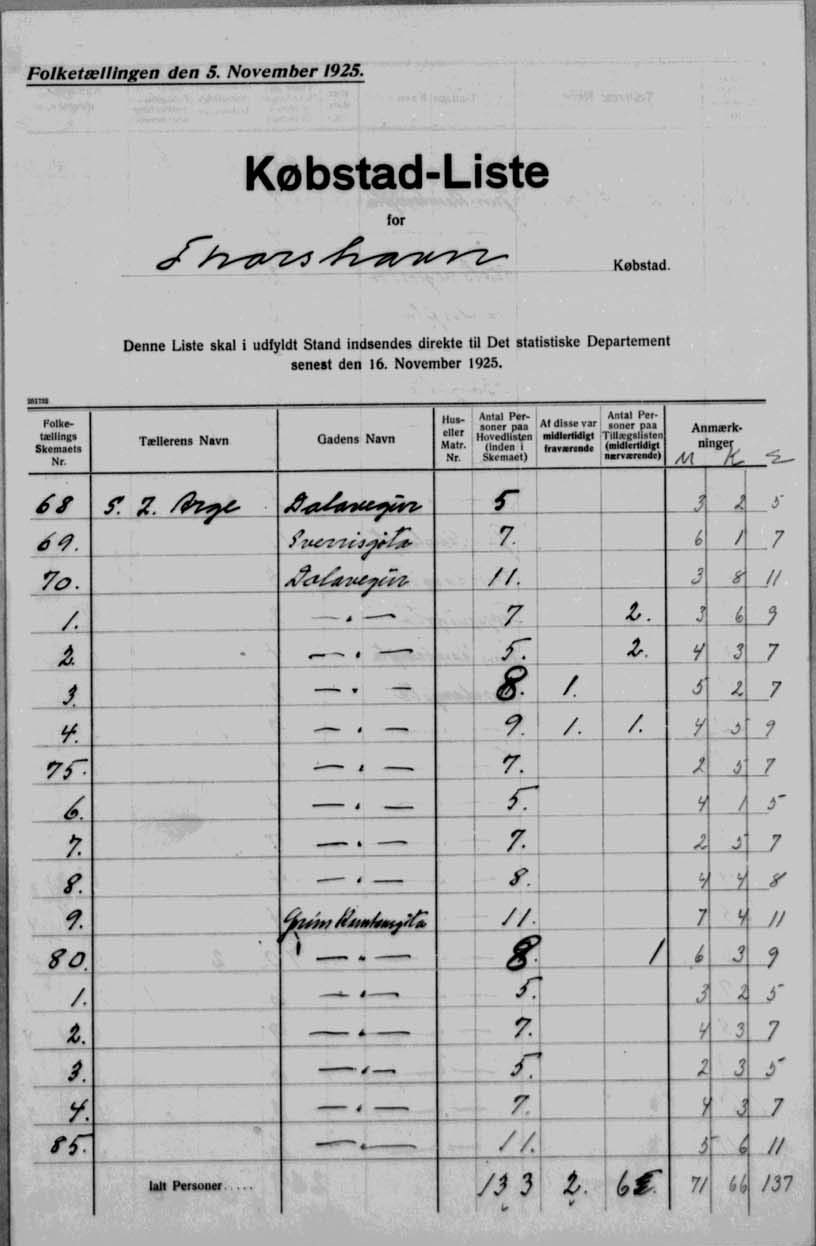 Folketællingen den 5. November 1925.
Købstad-Liste
for
Thorshavn Købstad.
Denne Liste skal i udfyldt Stand indsendes direkte til Det statistiske Departement
senest den 16. November 1925.
Folke-
tællings
Skemaets
Nr.
Tællerens Navn
Gadens Navn
Hus-
eller
Matr.
Nr.
Antal Per-
soner paa
Hovedlisten
(inden i
Skemaet)
Af disse var
midlertidigt
fraværende
Antal Per-
soner paa
Tillægslisten
(midlertidigt
nærværende)
Anmærk-
ninger
M K E
68 S. Z. Arge Dalavegur 5 3 2 5
69. Sverrisgöta 7. 6 1 7
70. Dalavegur 11. 3 8 11
1. — " — 7 2. 3 6 9
2. — " — 5. 2. 4 3 7
3. — " — 8. 1. 5 2 7
4. — " — 9. 1. 1. 4 5 9
75. — " — 7. 2 5 7
6. — " — 5. 4 1 5
7. — " — 7. 2 5 7
8. — " — 8. 4 4 8
9. Grím Kambansgöta 11. 7 4 11
80. — " — 8. 1 6 3 9
1. — " — 5. 3 2 5
2. — " — 7. 4 3 7
3. — " — 5. 2 3 5
4. — " — 7. 4 3 7
85. — " — 11. 5 6 11
Ialt Personer..... 133 2. 6 71 66 137